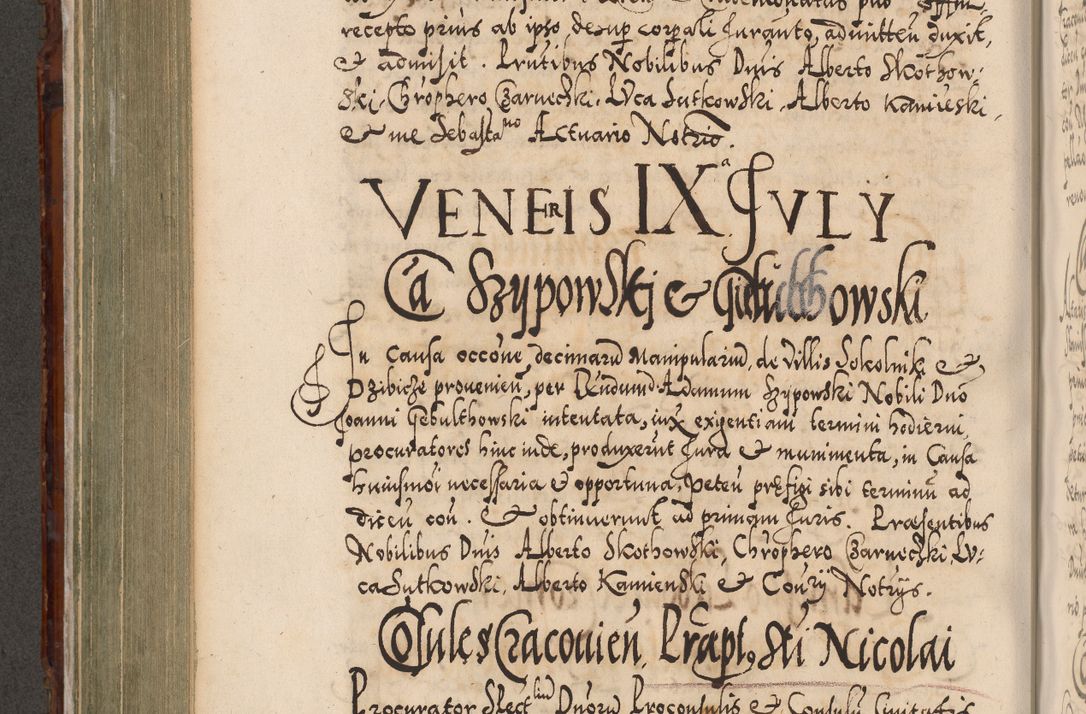 recepto prius ab ipso desup corpali Iuranto, admitten duxit,
& admisit. Prntibus Nobilibus Dnis Alberto Skothow-
ski, Chrophero Czarnechki, Luca Sutkowski, Alberto Kamieski,
& me Sebastano Actuario Notrio.
VENERIS IXa IULY
Ca Szypowski & Giebulthowski
In Causa occone decimaru Manipulariu, de villis Sokolnik &
Dzibicze prouenien, per Rndum Adamum Szypowski Nobili Dno
Joanni Gebulthowski intentata, iux exigentiam termini hodierni,
procuratores hinc inde, produxerut Iura & munimenta, in Causa
huiusmoi necessaria & opportuna, Peten prefigi sibi terminu ad
dicen con. & obtinuerunt ad primam Iuris. Praesentibus
Nobilibus Dnis Alberto Skothowski, Chrophero Czarnechki, Lu-
ca Sutkowski, Alberto Kamienski & Conrij Notrijs.
Cosules Cracouien, Prapt, Sti Nicolai
Procurator Spect Dnoru Proconsulis & Consulu Ciuitatis